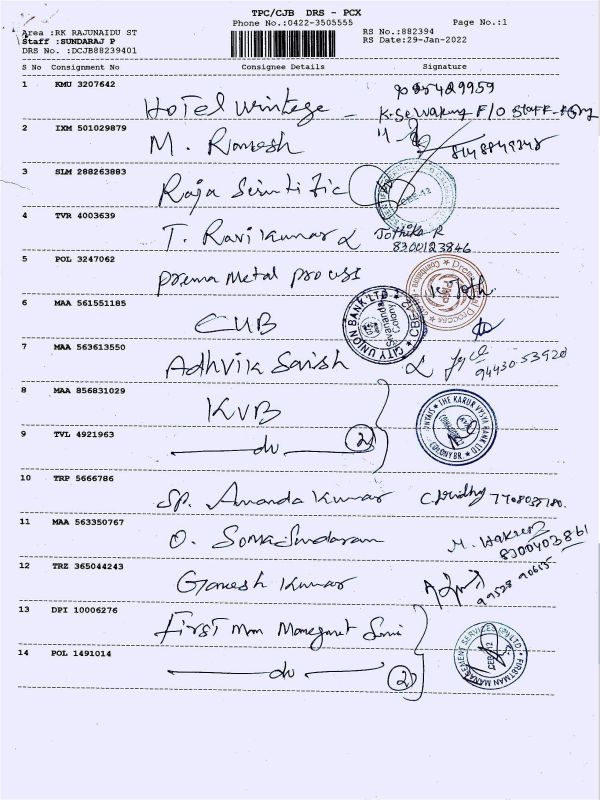 TPC/CJB DRS - PCX
Phone No.:0422-3505555 Page No.:1
Area :RK RAJUNAIDU ST RS No.:882394
Staff :SUNDARAJ P RS Date:29-Jan-2022
DRS No. :DCJB88239401
S No Consignment No Consignee Details Signature
1 KMU 3207642
Hotel Wintege
2 IXM 501029879
M. Ramesh
3 SLM 288263883
Raja Scientific
4 TVR 4003639
T. Ravi Kumar Jothika R
8300123846
5 POL 3247062
Prema Metal process
6 MAA 561551185
CUB
CITY UNION BANK LTD
7 MAA 563613550
Adhvik Sarish
94430 53920
8 MAA 856831029
KVB
THE KARUR VYSYA BANK LTD
COLONY BR.
9 TVL 4921963
do 2
10 TRP 5666786
Sp. Ananda Kumar
11 MAA 563350767
O. Somasundaram
8300403861
12 TRZ 365044243
Ganesh Kumar
13 DPI 10006276
First Man
FIRSTMAN MANAGEMENT SERVICES (P) LTD
CBE-12
14 POL 1491014
do 2